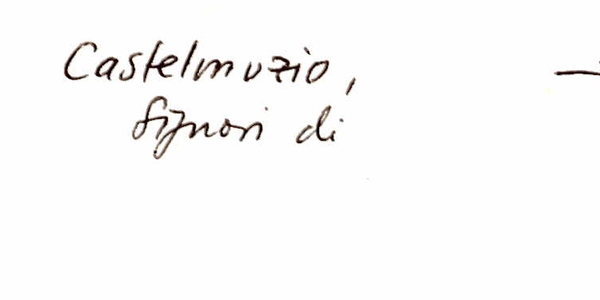 Castelmuzio, —
Signori di